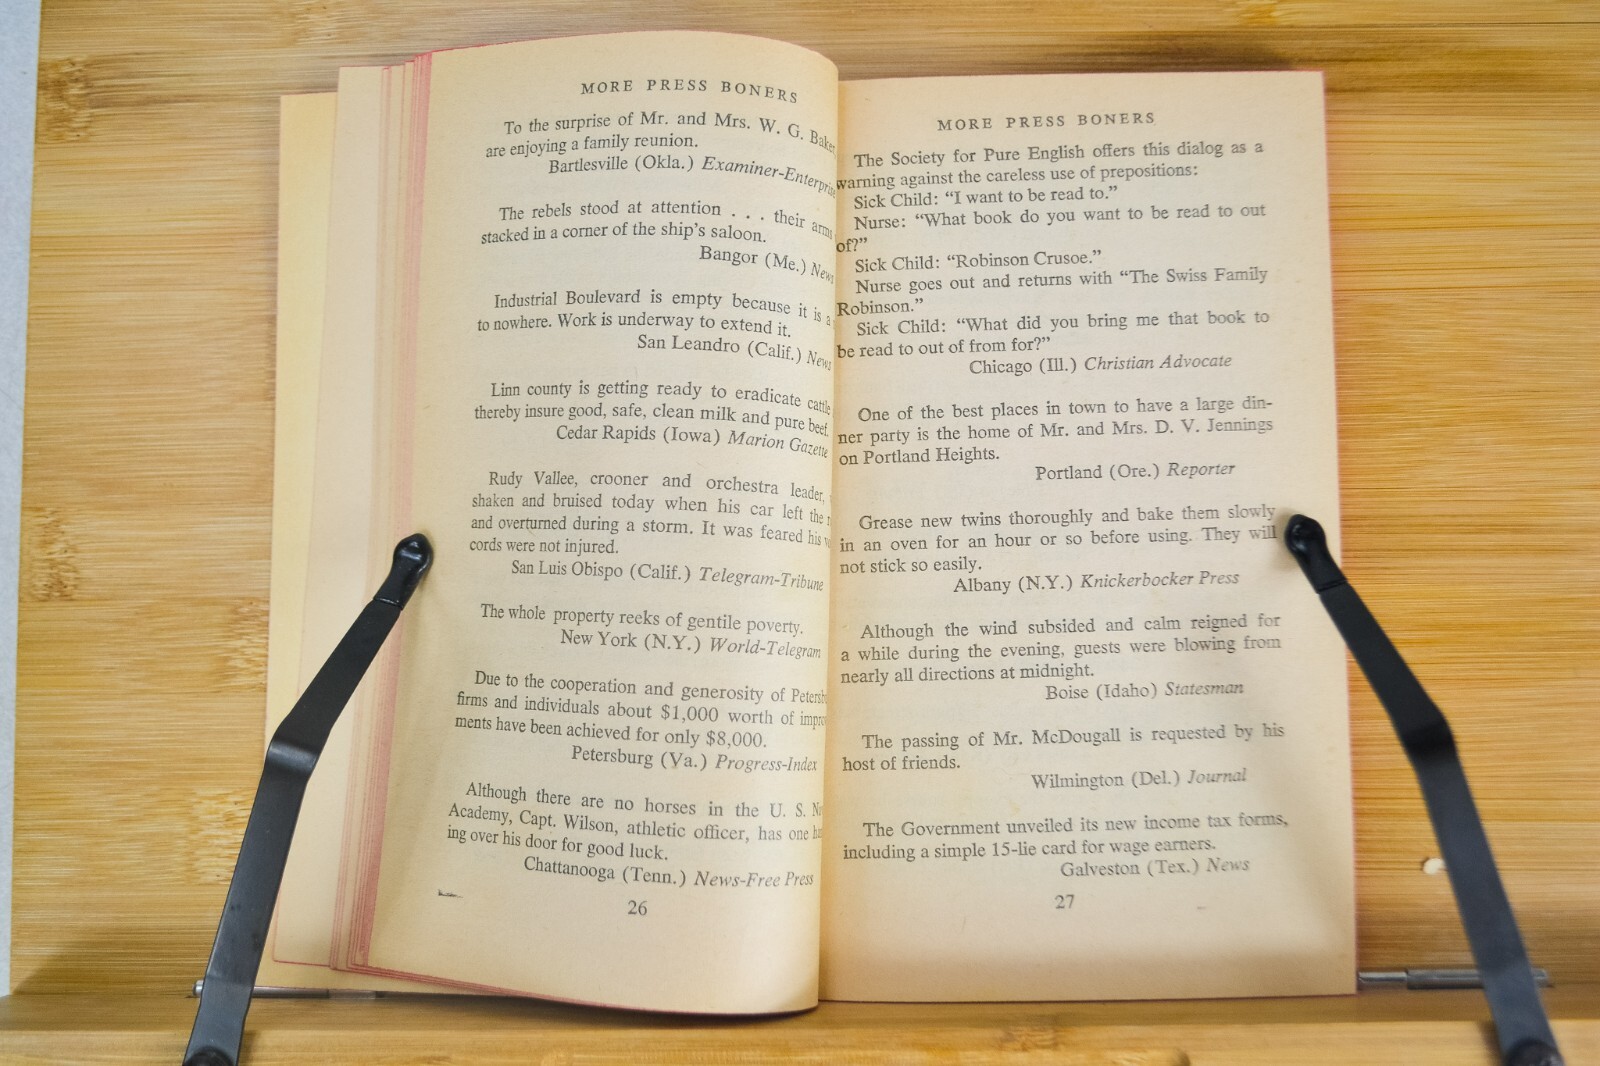 MORE PRESS BONERS
To the surprise of Mr. and Mrs. W. G. Baker,
are enjoying a family reunion.
Bartlesville (Okla.) Examiner-Enterprise
The rebels stood at attention . . . their arms
stacked in a corner of the ship's saloon.
Bangor (Me.) News
Industrial Boulevard is empty because it is a
to nowhere. Work is underway to extend it.
San Leandro (Calif.) News
Linn county is getting ready to eradicate cattle
thereby insure good, safe, clean milk and pure beef.
Cedar Rapids (Iowa) Marion Gazette
Rudy Vallee, crooner and orchestra leader,
shaken and bruised today when his car left the
and overturned during a storm. It was feared his
cords were not injured.
San Luis Obispo (Calif.) Telegram-Tribune
The whole property reeks of gentile poverty.
New York (N.Y.) World-Telegram
Due to the cooperation and generosity of
firms and individuals about $1,000 worth of
ments have been achieved for only $8,000.
Petersburg (Va.) Progress-Index
Although there are no horses in the U. S.
Academy, Capt. Wilson, athletic officer, has one
ing over his door for good luck.
Chattanooga (Tenn.) News-Free Press
26
MORE PRESS BONERS
The Society for Pure English offers this dialog as a
warning against the careless use of prepositions:
Sick Child: "I want to be read to."
Nurse: "What book do you want to be read to out
of?"
Sick Child: "Robinson Crusoe."
Nurse goes out and returns with "The Swiss Family
Robinson."
Sick Child: "What did you bring me that book to
be read to out of from for?"
Chicago (Ill.) Christian Advocate
One of the best places in town to have a large din-
ner party is the home of Mr. and Mrs. D. V. Jennings
on Portland Heights.
Portland (Ore.) Reporter
Grease new twins thoroughly and bake them slowly
in an oven for an hour or so before using. They will
not stick so easily.
Albany (N.Y.) Knickerbocker Press
Although the wind subsided and calm reigned for
a while during the evening, guests were blowing from
nearly all directions at midnight.
Boise (Idaho) Statesman
The passing of Mr. McDougall is requested by his
host of friends.
Wilmington (Del.) Journal
The Government unveiled its new income tax forms,
including a simple 15-lie card for wage earners.
Galveston (Tex.) News
27